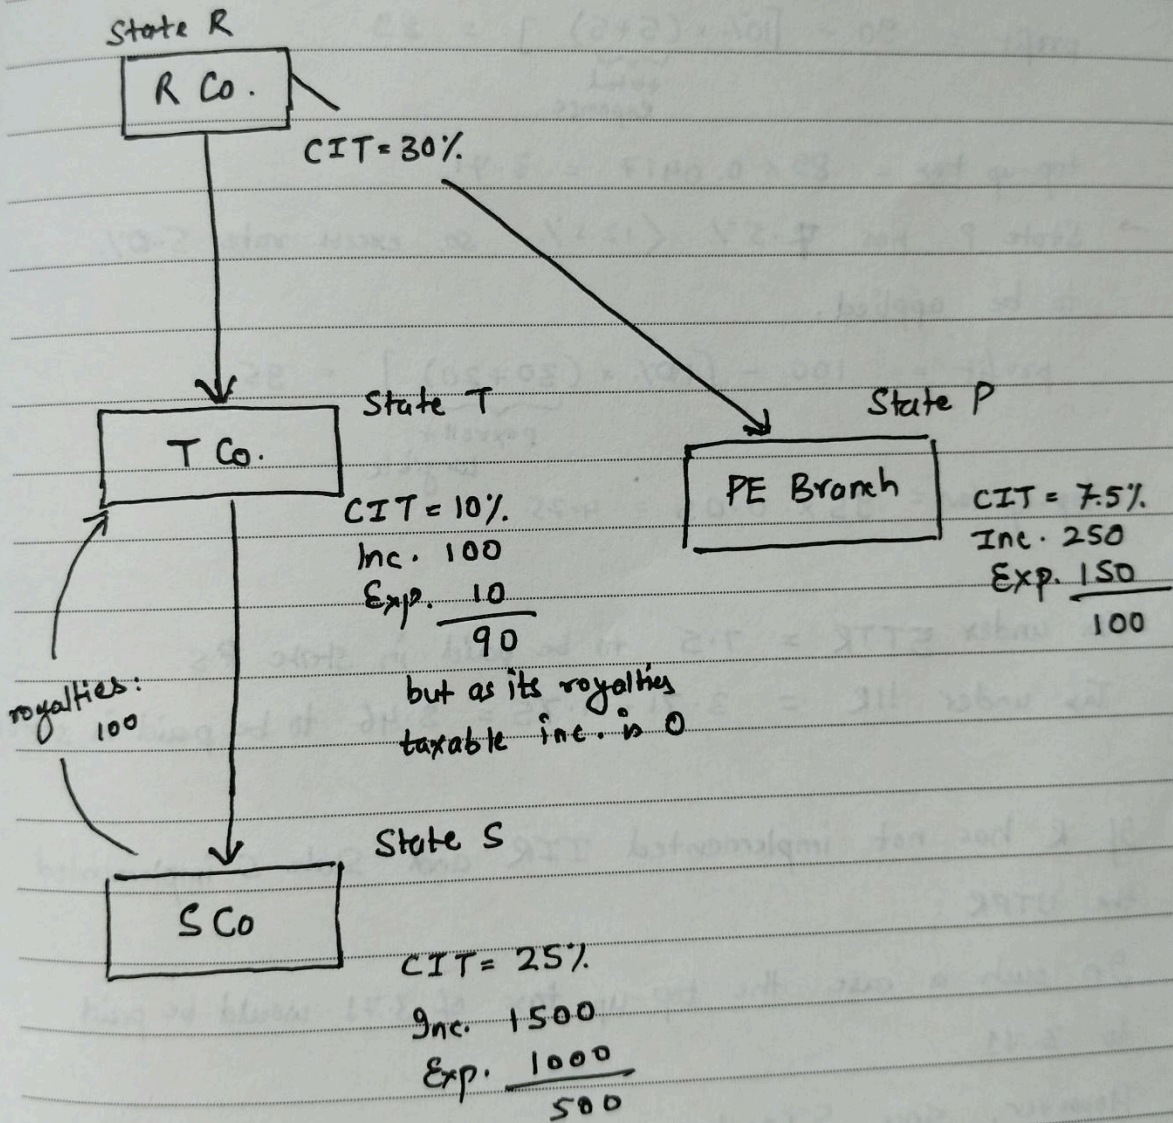 State R
R Co.
CIT = 30%
State T
T Co.
CIT = 10%
Inc. 100
Exp. 10
90
but as its royalties
taxable inc. is 0
State P
PE Branch
CIT = 7.5%
Inc. 250
Exp. 150
100
royalties:
100
State S
S Co
CIT = 25%
Inc. 1500
Exp. 1000
500